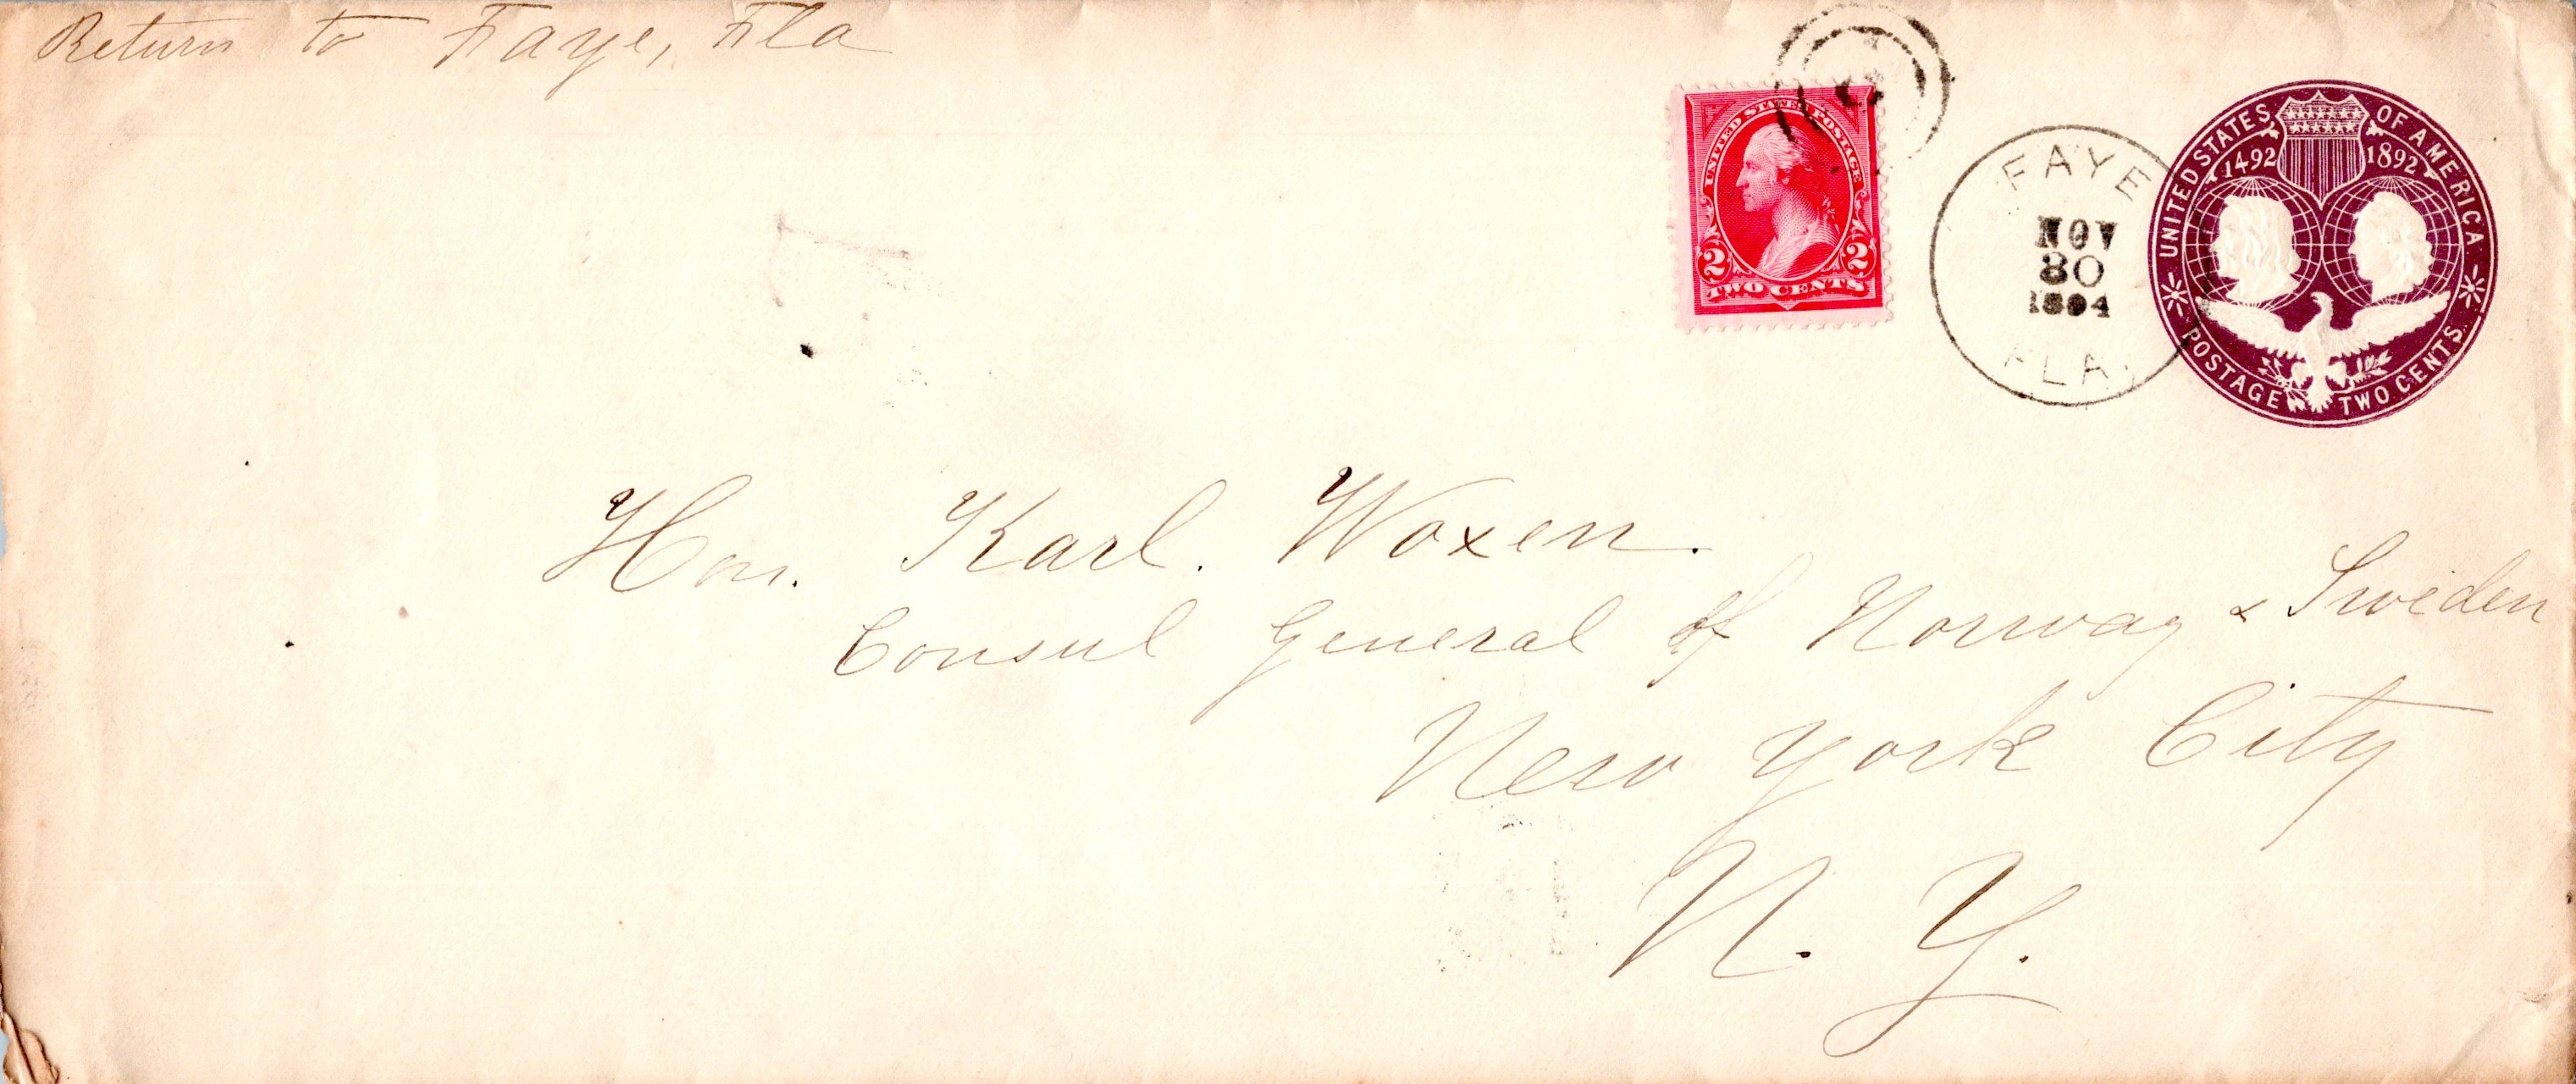 Return to Faye, Fla
UNITED STATES POSTAGE
2 2
TWO CENTS
FAYE
NOV
30
1894
FLA.
UNITED STATES OF AMERICA
1492 1892
POSTAGE TWO CENTS
Hon. Karl. Woxen.
Consul General of Norway & Sweden
New York City
N. Y.